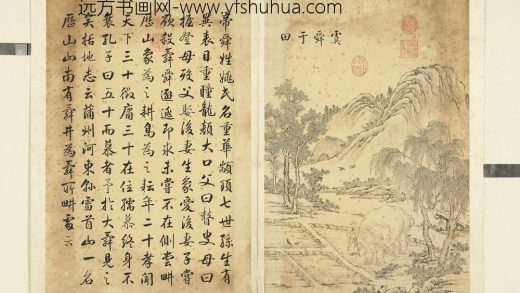 远方书画网 www.yfshuhua.com
虞舜于田
帝舜姓姚氏名重華顓頊七世孫生有
異表目重瞳龍顏大口父曰瞽叟母曰
握登母歿父娶後妻生象愛後妻子嘗
欲殺舜舜遜避即求未嘗不在側嘗畊
厯山象為之耕鳥為之耘年二十孝聞
天下三十徵庸三十在位孺慕終身不
衰孔子曰五十而慕者予於大舜見之
矣括地志云蒲州河東縣雷首山一名
厯山山南有舜井為舜所畊處云